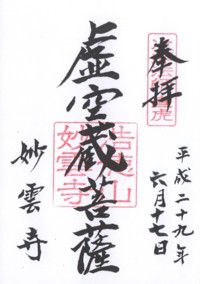 奉拝
平成二十九年
六月十七日
虚空蔵菩薩
妙雲寺